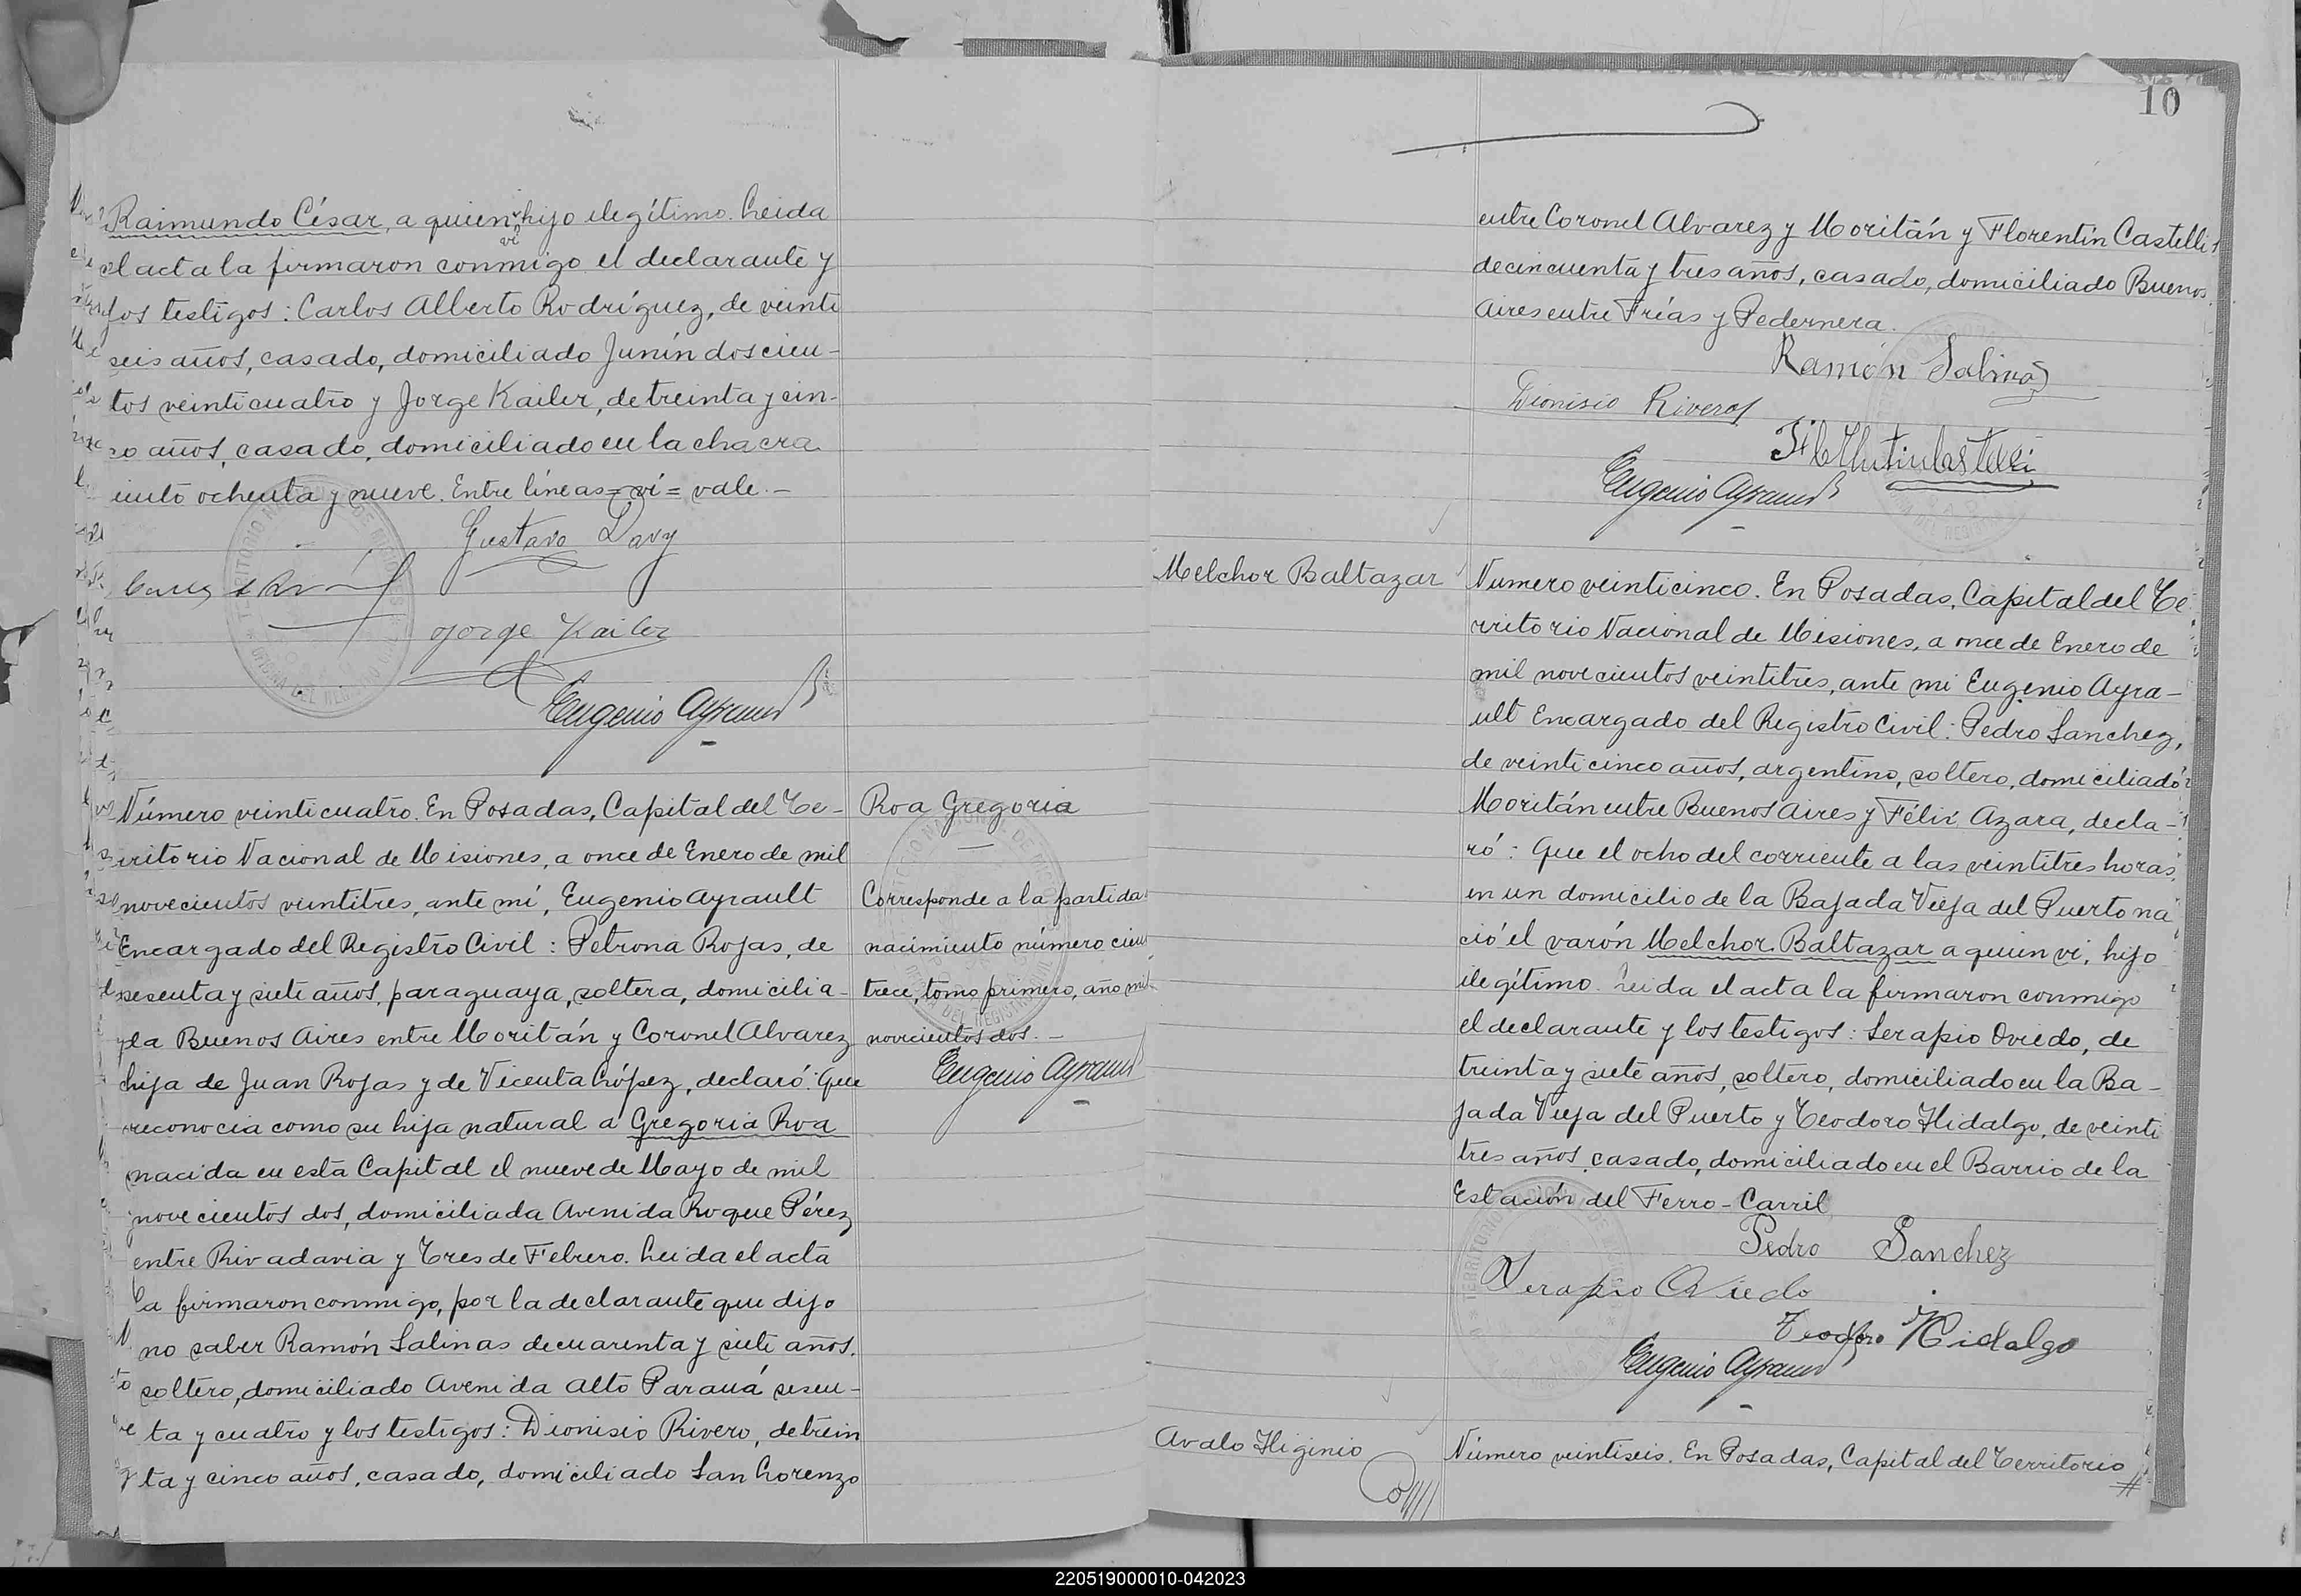 Raimundo César, a quien vi hijo ilegítimo. Leida
el acta la firmaron conmigo el declarante y
los testigos: Carlos Alberto Rodríguez, de veinti
seis años, casado, domiciliado Junín doscien-
tos veinticuatro y Jorge Kailer, de treinta y cin-
co años, casado, domiciliado en la chacra
ciento ochenta y nueve. Entre líneas = vi = vale.-
Gustavo Davy
Jorge Kailer
Eugenio Ayrault
Número veinticuatro. En Posadas, Capital del Te-
rritorio Nacional de Misiones, a once de Enero de mil
novecientos veintitres, ante mí, Eugenio Ayrault
Encargado del Registro Civil: Petrona Rojas, de
sesenta y siete años, paraguaya, soltera, domicilia-
da Buenos Aires entre Moritán y Coronel Alvarez
hija de Juan Rojas y de Vicenta López, declaró: Que
reconocia como su hija natural a Gregoria Roa
nacida en esta Capital el nueve de Mayo de mil
novecientos dos, domiciliada Avenida Roque Pérez
entre Rivadavia y Tres de Febrero. Leida el acta
la firmaron conmigo, por la declarante que dijo
no saber Ramón Salinas de cuarenta y siete años.
soltero, domiciliado Avenida Alto Paraná sesen-
ta y cuatro y los testigos: Dionisio Rivero, de trein
ta y cinco años, casado, domiciliado San Lorenzo
Roa Gregoria
Corresponde a la partida
nacimiento número cien
trece, tomo primero, año mil
novecientos dos.-
Eugenio Ayrault
10
entre Coronel Alvarez y Moritán y Florentín Castelli
de cincuenta y tres años, casado, domiciliado Buenos
Aires entre Frías y Pedernera.
Ramón Salinas
Dionisio Riveros
Eugenio Ayrault
Melchor Baltazar
Numero veinticinco. En Posadas, Capital del Te
rritorio Nacional de Misiones, a once de Enero de
mil novecientos veintitres, ante mi Eugenio Ayra-
ult Encargado del Registro Civil: Pedro Sanchez,
de veinticinco años, argentino, soltero, domiciliado
Moritán entre Buenos Aires y Félix Azara, decla-
ró: Que el ocho del corriente a las veintitres horas,
en un domicilio de la Bajada Vieja del Puerto na
ció el varón Melchor Baltazar a quien vi, hijo
ilegítimo. Leida el acta la firmaron conmigo
el declarante y los testigos: Serapio Oviedo, de
treinta y siete años, soltero, domiciliado en la Ba-
jada Vieja del Puerto y Teodoro Hidalgo, de veinti
tres años, casado, domiciliado en el Barrio de la
Estación del Ferro-Carril
Pedro Sanchez
Serapio Oviedo
Teodoro Hidalgo
Eugenio Ayrault
Avalo Higinio
Número veintiseis. En Posadas, Capital del Territorio
220519000010-042023